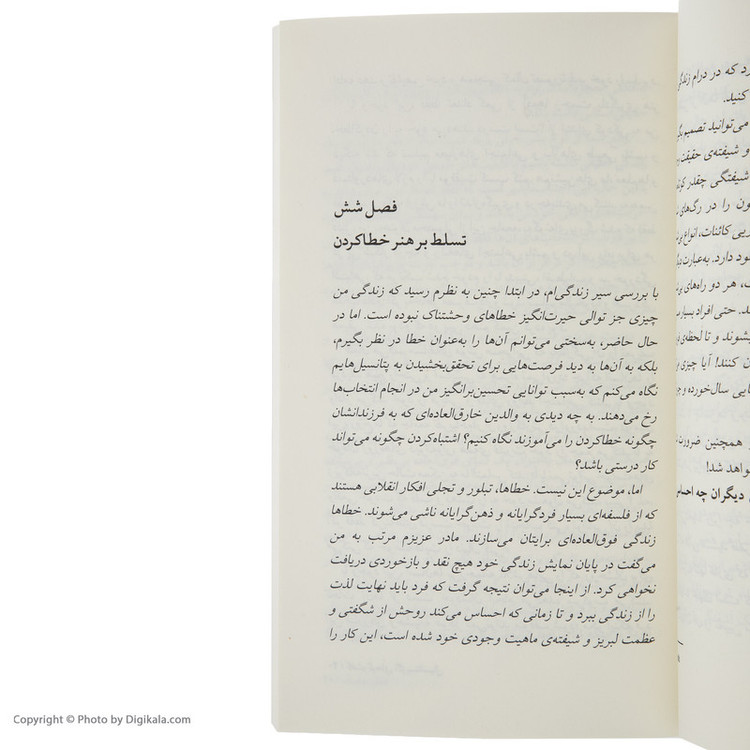 فصل شش
تسلط بر هنر خطاکردن
با بررسی سیر زندگی‌ام، در ابتدا چنین به نظرم رسید که زندگی من
چیزی جز توالی حیرت‌انگیز خطاهای وحشتناک نبوده است. اما در
حال حاضر، به‌سختی می‌توانم آن‌ها را به‌عنوان خطا در نظر بگیرم،
بلکه به آن‌ها به دید فرصت‌هایی برای تحقق‌بخشیدن به پتانسیل‌هایم
نگاه می‌کنم که به‌سبب توانایی تحسین‌برانگیز من در انجام انتخاب‌ها
رخ می‌دهند. به چه دیدی به والدین خارق‌العاده‌ای که به فرزندانشان
چگونه خطاکردن را می‌آموزند نگاه کنیم؟ اشتباه‌کردن چگونه می‌تواند
کار درستی باشد؟
اما، موضوع این نیست. خطاها، تبلور و تجلی افکار انقلابی هستند
که از فلسفه‌ای بسیار فردگرایانه و ذهن‌گرایانه ناشی می‌شوند. خطاها
زندگی فوق‌العاده‌ای برایتان می‌سازند. مادر عزیزم مرتب به من
می‌گفت در پایان نمایش زندگی خود هیچ نقد و بازخوردی دریافت
نخواهی کرد. از اینجا می‌توان نتیجه گرفت که فرد باید نهایت لذت
را از زندگی ببرد و تا زمانی که احساس می‌کند روحش از شگفتی و
عظمت لبریز و شیفته‌ی ماهیت وجودی خود شده است، این کار را
که در درام زندگی
کنید.
می‌توانید تصمیم
و شیفته‌ی حقیقت
شیفتگی چقدر
را در رگ‌های
کائنات، انواع
دارد. به‌عبارت
هر دو راه‌های
حتی افراد بسیار
و تا لحظه‌ی
کنند! آیا چیزی
سال‌خورده و
همچنین ضرورت
شد!
دیگران چه
Copyright © Photo by Digikala.com